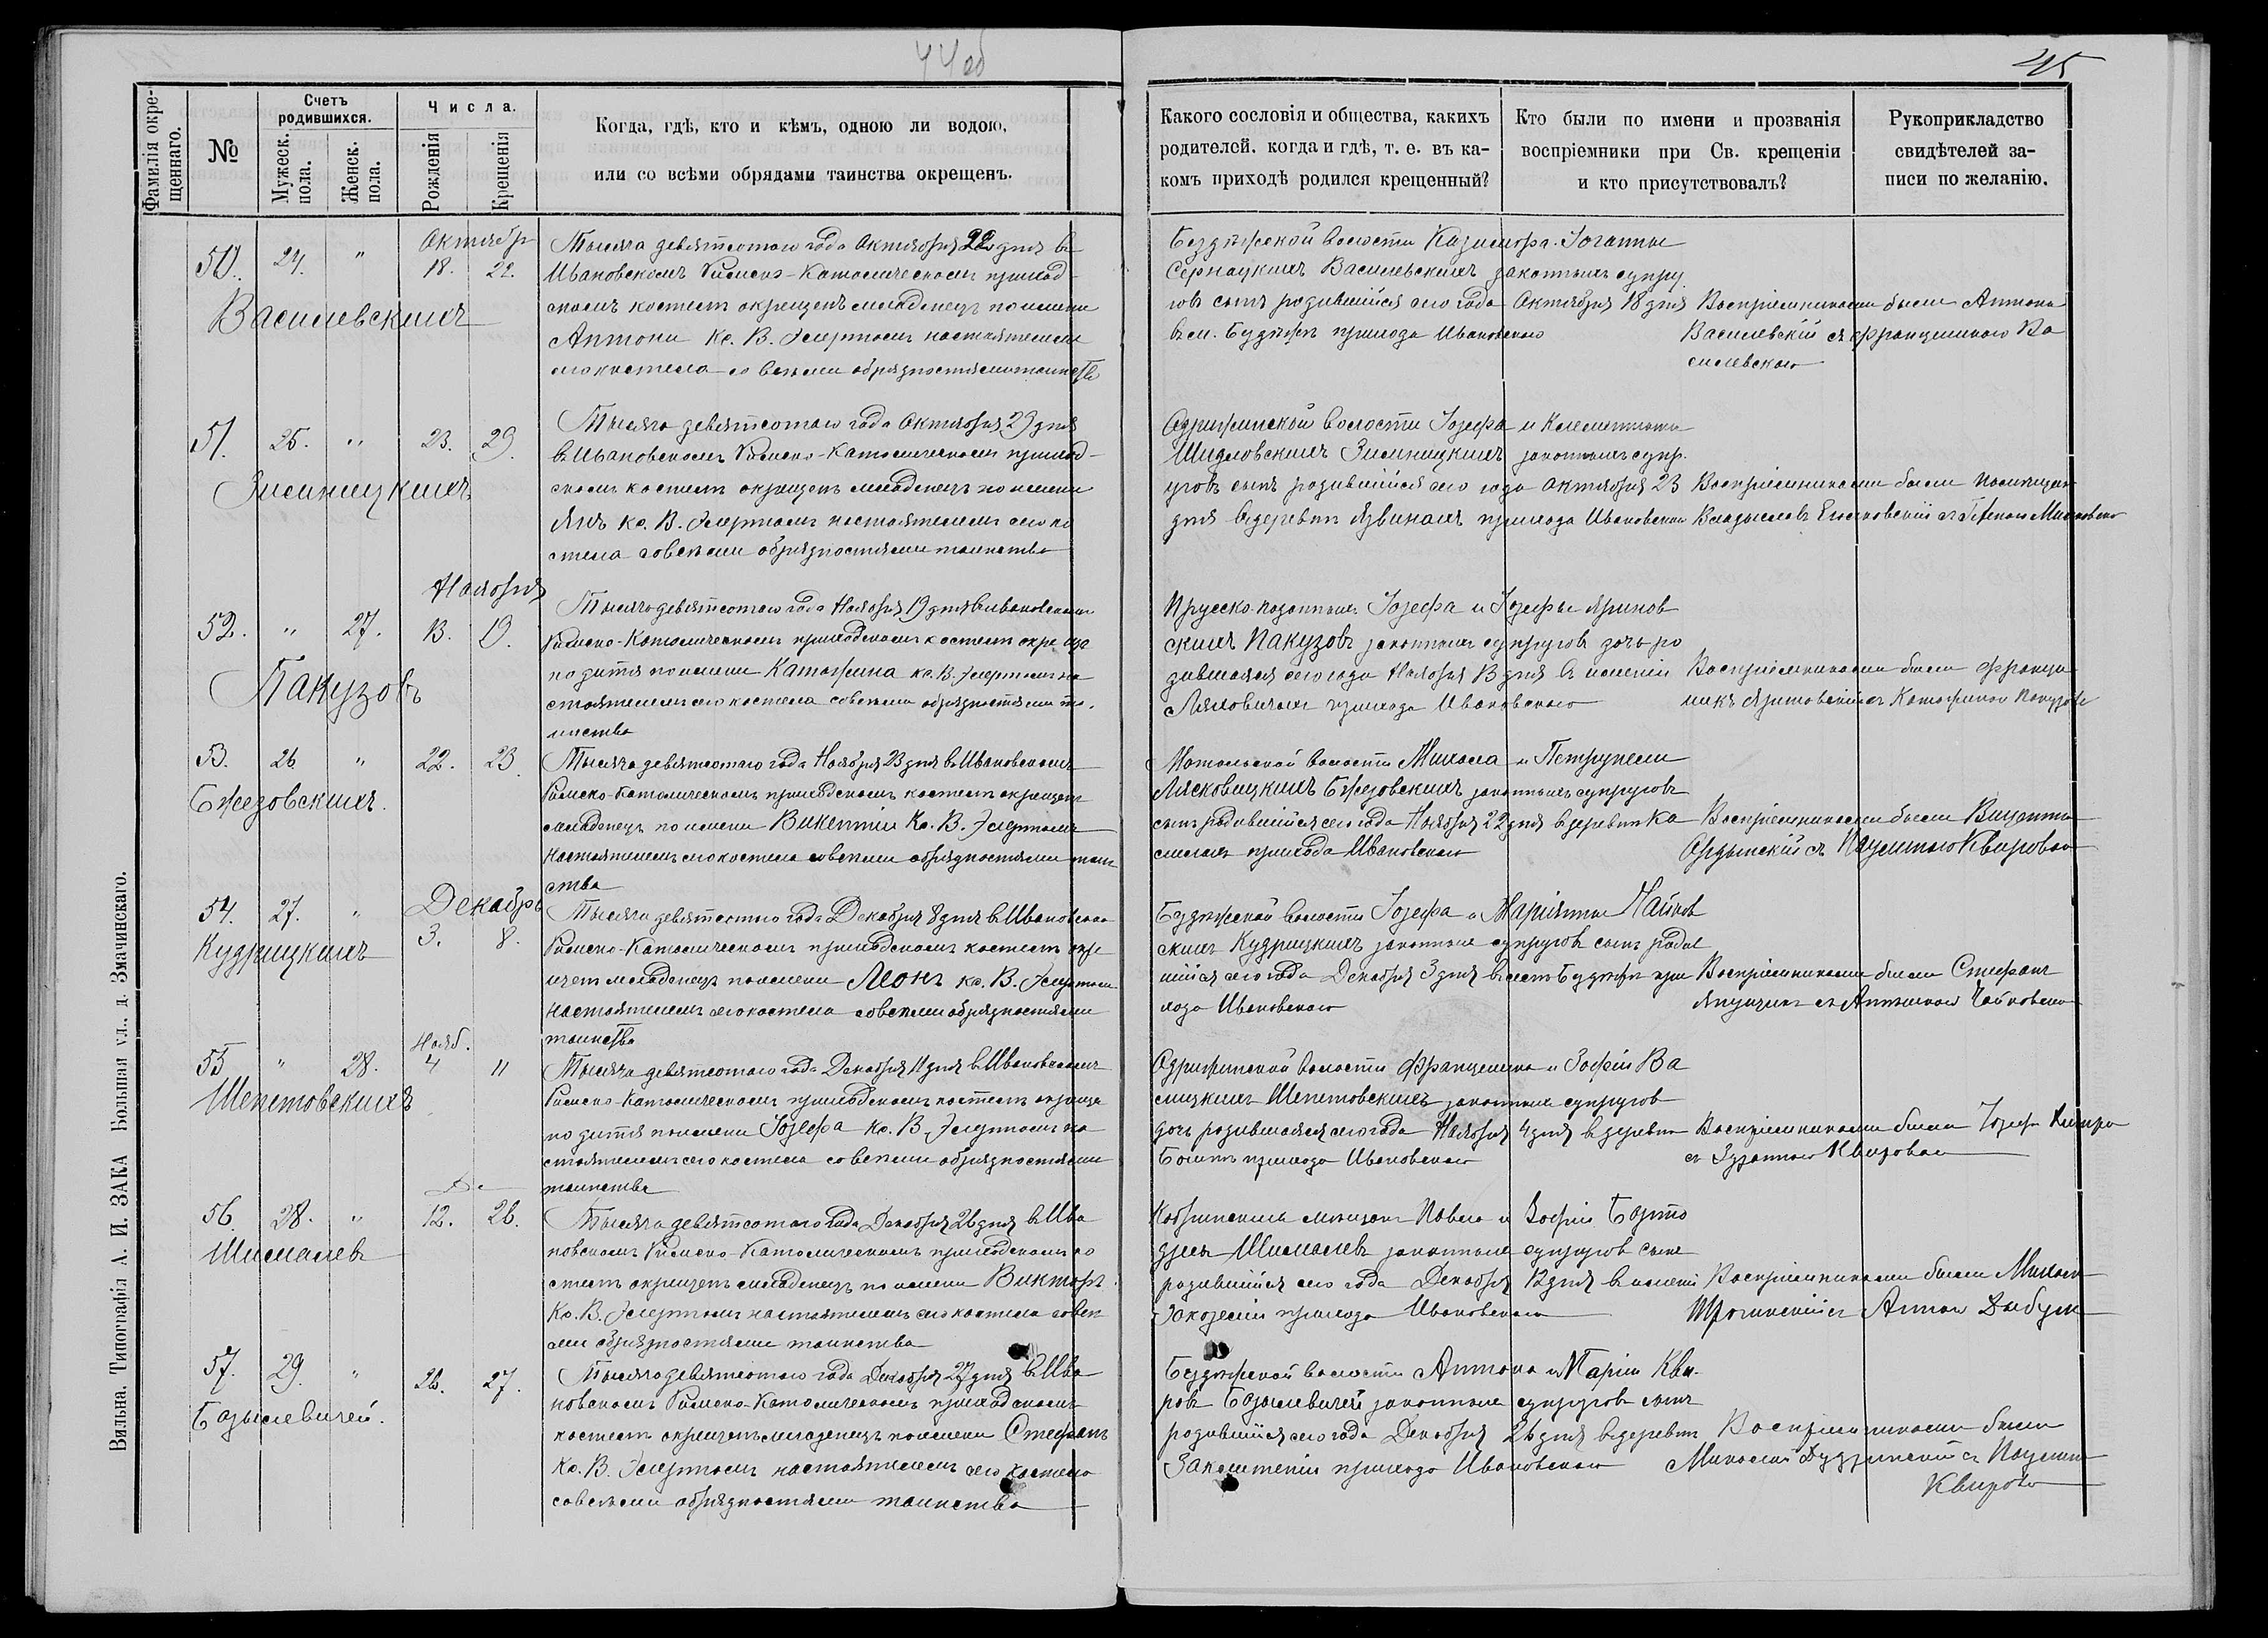 44об
45
Фамилія окре-
щеннаго.
№
Счетъ
родившихся.
Мужеск.
пола.
Женск.
пола.
Числа.
Рожденія
Крещенія
Когда, гдѣ, кто и кѣмъ, одною ли водою,
или со всѣми обрядами таинства окрещенъ.
Какого сословія и общества, какихъ
родителей. когда и гдѣ, т. е. въ ка-
комъ приходѣ родился крещенный?
Кто были по имени и прозванія
воспріемники при Св. крещеніи
и кто присутствовалъ?
Рукоприкладство
свидѣтелей за-
писи по желанію.
Октябр
50. 24. " 18. 22.
Василевскихъ
Тысяча девятсотаго года Октября 22 дня въ
Ивановскомъ Римско-Католическомъ приход-
скомъ костелѣ окрещенъ младенецъ по имени
Антони Кс. В. настоятелемъ
сего костела со всѣми обрядностями таинства
Бездѣжской волости Казимѣра
Василевскихъ законныхъ супру
говъ сынъ родившійся сего года Октября 18 дня
прихода Ивановскаго
Воспріемниками были Антони
Василевскій съ Францишкою Ва
силевскою
51. 25. " 23. 29.
Зимницкихъ
Тысяча девятсотаго года Октября 29 дня
въ Ивановскомъ Римско-Католическомъ приход-
скомъ костелѣ окрещенъ младенецъ по имени
Янъ Кс. В. настоятелемъ сего ко
стела со всѣми обрядностями таинства
Одрижинской волости Іозефа и
Шидловскихъ Зимницкихъ законныхъ супр.
уговъ сынъ родившійся сего года Октября 23
дня въ деревни прихода Ивановскаго
Воспріемниками были
Владыславъ съ
Ноября
52. " 27. 13. 19.
Пакузовъ
Тысяча девятсотаго года Ноября 19 дня въ Ивановскомъ
Римско-Католическомъ приходскомъ костелѣ окрещ
но дитя по имени Катажина кс. В. на
стоятелемъ сего костела со всѣми обрядностями та
инства
Прусско-подданныхъ Іозефа и Іозефы Яринов
скихъ Пакузовъ законныхъ супруговъ дочь ро
дившаяся сего года Ноября 13 дня въ имѣніи
Ляховичахъ прихода Ивановскаго
Воспріемниками были Францы
съ Катажиной
53. 26 " 22. 23.
Бжезовскихъ.
Тысяча девятсотаго года Ноября 23 дня въ Ивановскомъ
Римско-Католическомъ приходскомъ костелѣ окрещенъ
младенецъ по имени Викентій Кс. В.
настоятелемъ сего костела со всѣми обрядностями таин
ства
Мотольской волости Михала и Петрунели
Лясковицкихъ Бжезовскихъ законныхъ супруговъ
сынъ родившійся сего года Ноября 22 дня въ деревни Ка
прихода Ивановскаго
Воспріемниками были
съ Паулиною Квировою
Декабрь
54. 27. " 3. 8.
Кудрицкихъ
Тысяча девятсотаго года Декабря 8 дня въ Ивановском
Римско-Католическомъ приходскомъ костелѣ окре
щенъ младенецъ по имени Леонъ кс. В.
настоятелемъ сего костела со всѣми обрядностями
таинства
волости Іозефа и Маріянны Чайков
скихъ Кудрицкихъ законныхъ супруговъ сынъ родив
шійся сего года Декабря 3 дня въ при
хода Ивановскаго
Воспріемниками были Стефанъ
съ Чайковскою
Нояб.
55 " 28. 4 11
Шепетовскихъ
Тысяча девятсотаго года Декабря 11 дня въ Ивановскомъ
Римско-Католическомъ приходскомъ костелѣ окреще
но дитя по имени Іозефа Кс. В. на
стоятелемъ сего костела со всѣми обрядностями
таинства
Одрижинской волости Францишка и Зофіи Ва
лицкихъ Шепетовскихъ законныхъ супруговъ
дочь родившаяся сего года Ноября 4 дня въ деревни
прихода Ивановскаго
Воспріемниками были Іозефъ
съ Квировою
Де
56. 28. " 12. 26.
Шималевъ
Тысяча девятсотаго года Декабря 26 дня въ Ива
новскомъ Римско-Католическомъ приходскомъ ко
стелѣ окрещенъ младенецъ по имени Викторъ
Кс. В. настоятелемъ сего костела со всѣ
ми обрядностями таинства
Павла и Зофіи
Шималевъ законныхъ супруговъ сынъ
родившійся сего года Декабря 12 дня въ имѣніи
прихода Ивановскаго
Воспріемниками были Михалъ
съ
57. 29. " 26. 27.
Базылевичей.
Тысяча девятсотаго года Декабря 27 дня въ Ива
новскомъ Римско-Католическомъ приходскомъ
костелѣ окрещенъ младенецъ по имени Стефанъ
Кс. В. настоятелемъ сего костела
со всѣми обрядностями таинства
Бездѣжской волости Антона и Маріи Кви-
ровъ Базылевичей законныхъ супруговъ сынъ
родившійся сего года Декабря 26 дня въ деревни
прихода Ивановскаго
Воспріемниками были
съ Паулиною
Квировою
Вильна. Типографія А. И. ЗАКА Большая ул., д. Змачинскаго.